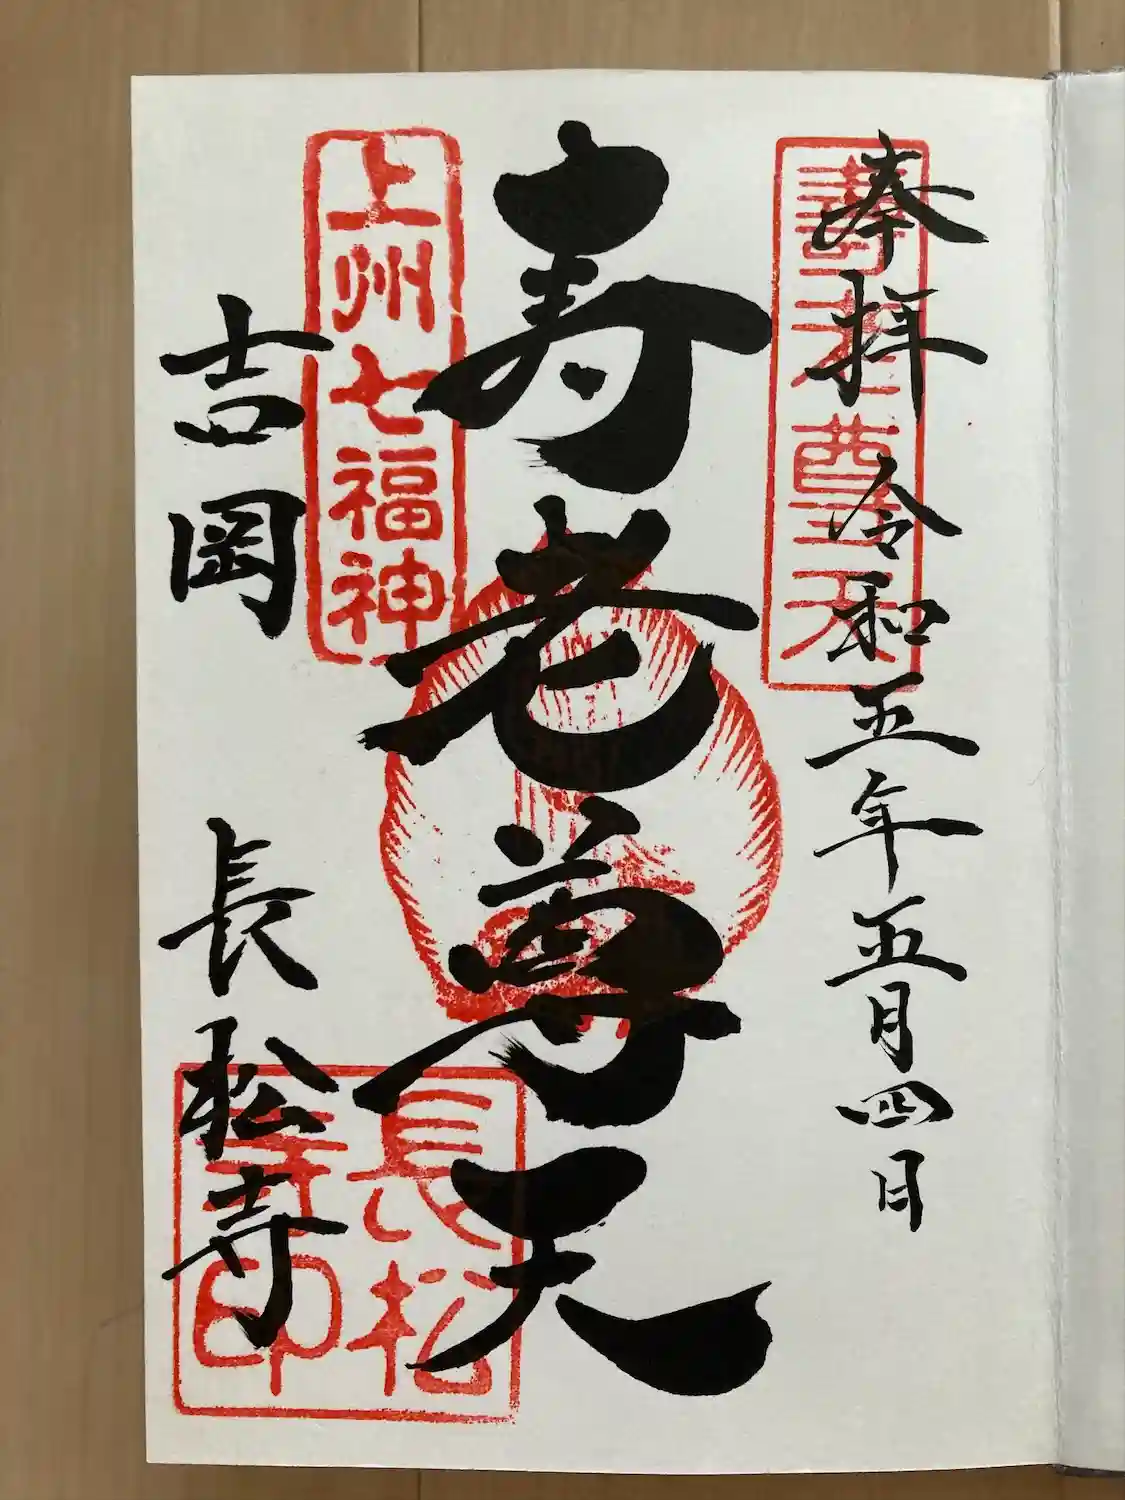 奉拝 令和五年五月四日
壽老尊天
寿老尊天
上州七福神
吉岡 長松寺
長松寺印